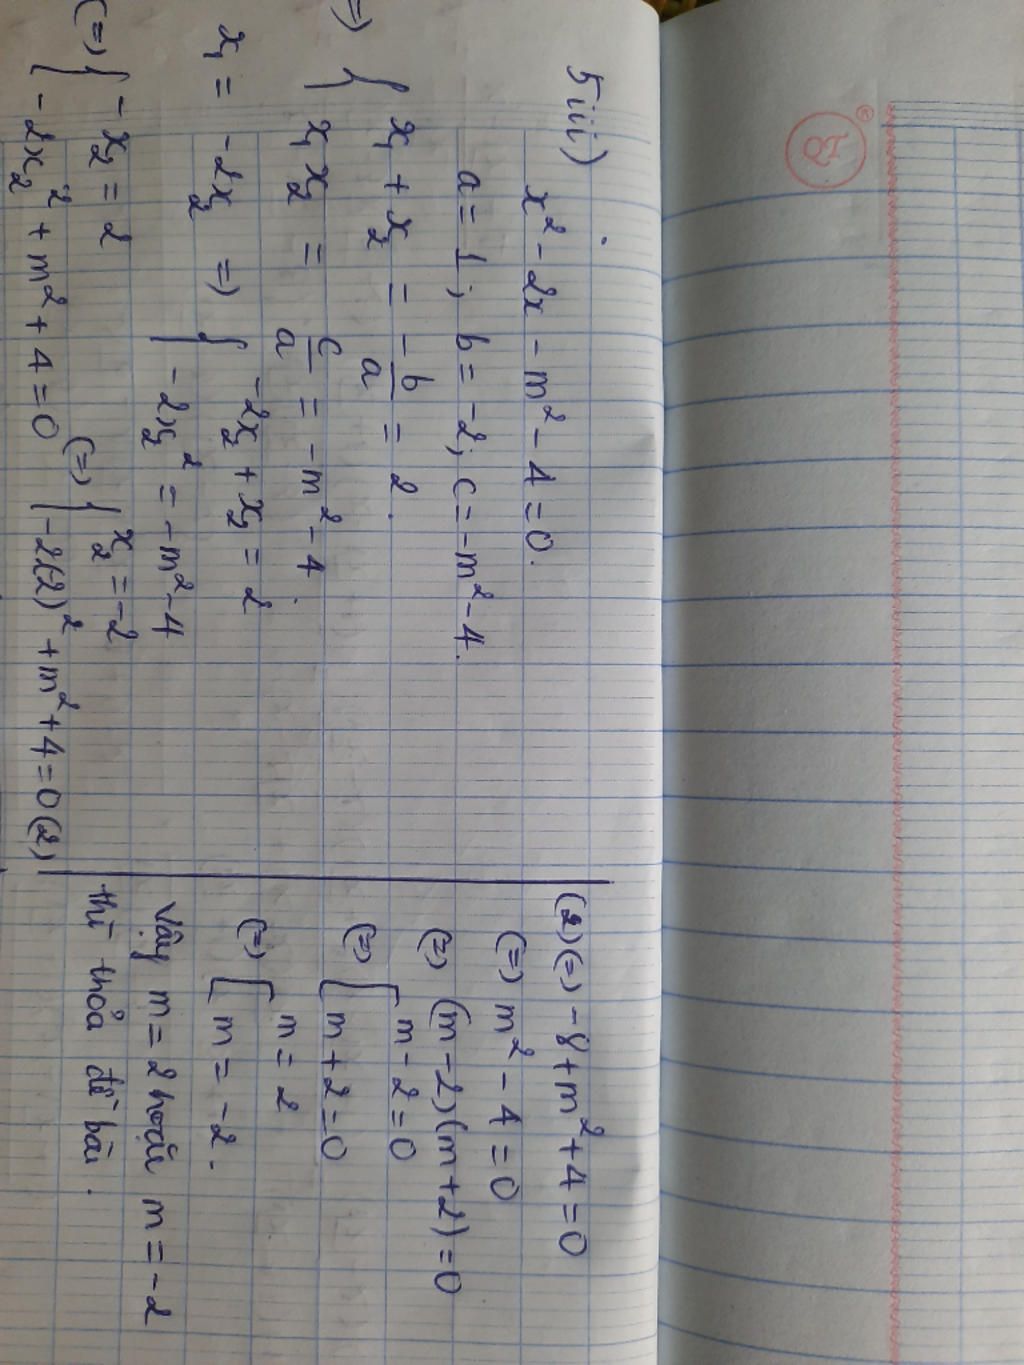 5iii)
x² - 2x - m² - 4 = 0.
a = 1; b = -2; c = -m² - 4.
=> { x₁ + x₂ = -b/a = 2.
x₁x₂ = c/a = -m² - 4.
x₁ = -2x₂ => { -2x₂ + x₂ = 2
-2x₂² = -m² - 4
(=) { -x₂ = 2
-2x₂² + m² + 4 = 0
(=) { x₂ = -2
-2(-2)² + m² + 4 = 0 (2)
(2) (=) -8 + m² + 4 = 0
(=) m² - 4 = 0
(=) (m - 2)(m + 2) = 0
(=) [ m - 2 = 0
m + 2 = 0
(=) [ m = 2
m = -2.
Vậy m = 2 hoặc m = -2
thì thỏa đề bài.